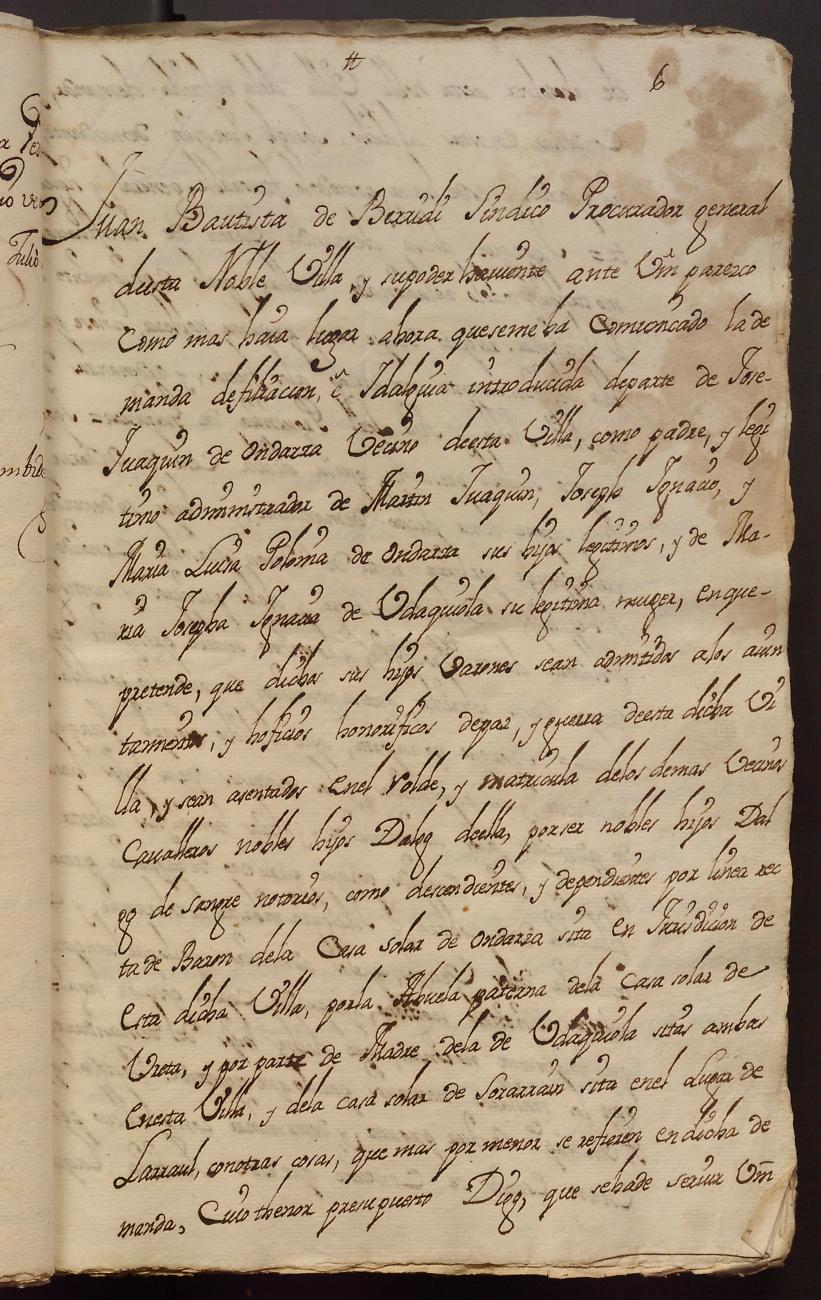 #
6
Juan Bautista de Berridi Sindico Procurador general
desta Noble Villa, y supoder haviente ante Vm parezco
como mas haia lugar ahora queseme ha Comunicado la de
manda defiliacion, è Idalguia introducida departe de Jose-
Juaquin de Ondarra Vecino deesta Villa, como padre, y legi
timo administrador de Martin Juaquin, Joseph Ignacio, y
Maria Luisa Poloma de Ondarra sus hijos legitimos, y de Ma-
ria Josepha Ignazia de Vdaquiola su legitima muger, enque-
pretende, que dichos sus hijos Varones sean admitidos alos aiun
tamientos, y hoficios honorificos depaz, y guerra deesta dicha Vi
lla, y sean asentados enel rolde, y matricula delos demas Vecinos
Cavalleros nobles hijos Dalgo deella, porser nobles hijos Dal
go de sangre notorios, como descendientes, y dependientes por linea rec
ta de Baron dela Casa solar de Ondarra sita en Jurisdicion de
esta dicha Villa, porla Abuela paterna dela Casa solar de
Vreta, y por parte de Madre dela de Vdaquiola sitas ambas
enesta Villa, y dela casa solar de Sorarrain sita enel Lugar de
Larraul, conotras cosas, que mas por menor se refieren endicha de
manda, Cuio thenor presupuesto Digo, que sehade servir Vm